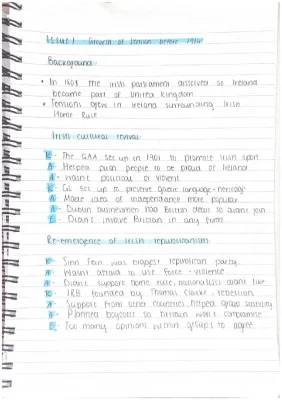 Issue 1 Growth of tension before 1914
Background
• In 1801 the Irish parliament dissolved so Ireland
became part of United Kingdom
• Tensions grew in Ireland surrounding Irish
Home Rule
Irish cultural revival
K - The GAA set up in 1901 to promote Irish sport
A - Helped push people to be proud of Ireland
A - Wasn't political or violent
K - GL set up to preserve Gaelic language + heritage
A - Made idea of independence more popular
A - Dublin businessmen had British deals so didn't join
E - Didn't involve Britain in any form
Re-emergence of Irish republicanism
K - Sinn Fein was biggest republican party
A - Wasn't afraid to use force + violence
A - Didn't support home rule, nationalists didn't like
K - IRB founded by Thomas Clarke, rebellion
A - Support from other countries, helped group stability
A - Planned boycotts so Britain would compromise
E - Too many opinions within groups to agree